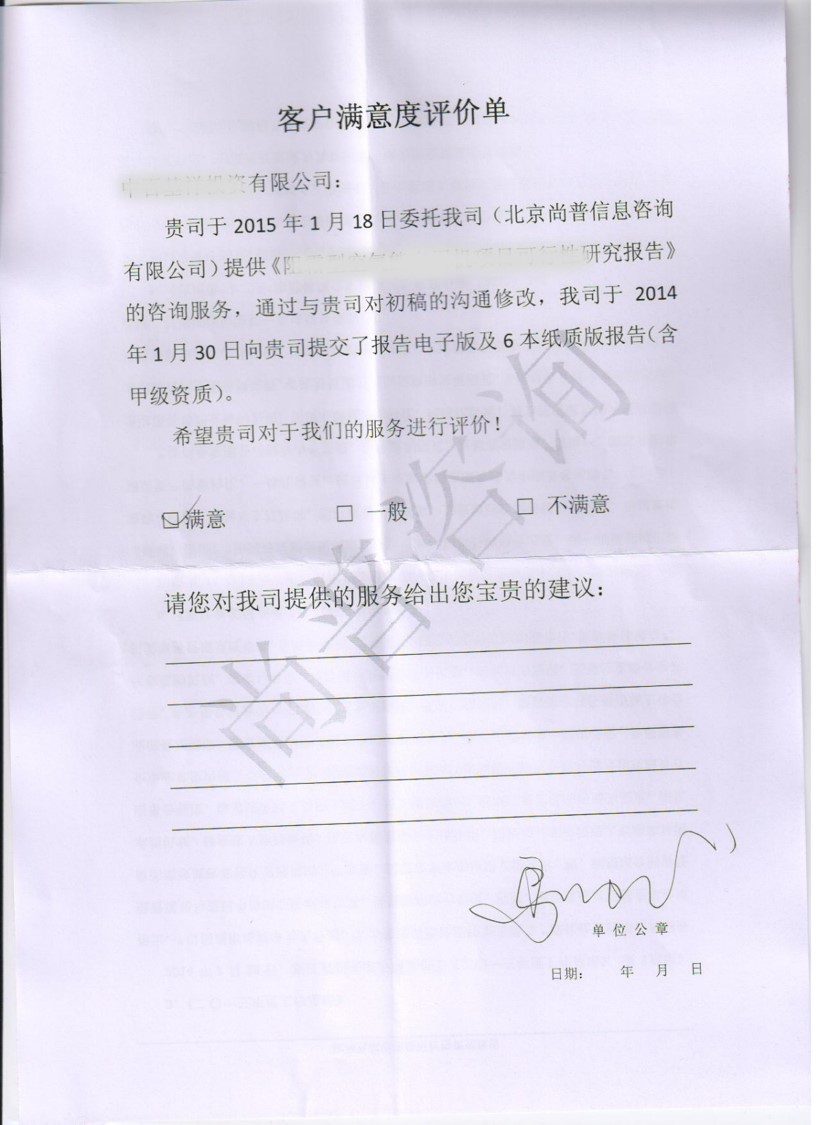 客户满意度评价单
有限公司：
贵司于 2015 年 1 月 18 日委托我司（北京尚普信息咨询
有限公司）提供《研究报告》
的咨询服务，通过与贵司对初稿的沟通修改，我司于 2014
年 1 月 30 日向贵司提交了报告电子版及 6 本纸质版报告（含
甲级资质）。
希望贵司对于我们的服务进行评价！
☑满意 □ 一般 □ 不满意
请您对我司提供的服务给出您宝贵的建议：
尚普咨询
单位公章
日期： 年 月 日